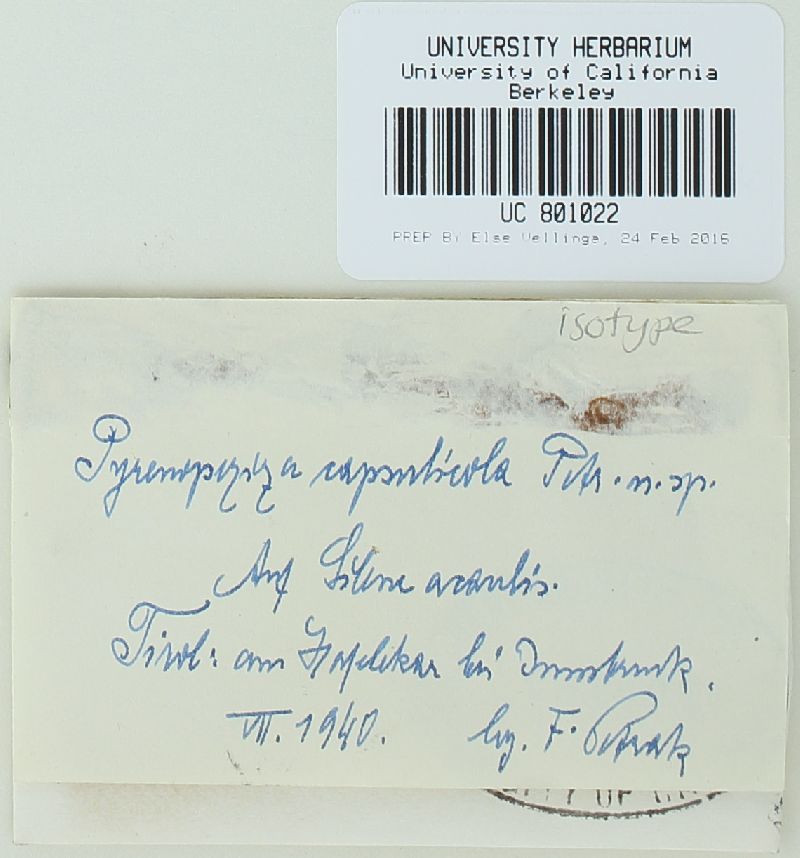 UNIVERSITY HERBARIUM
University of California
Berkeley
UC 801022
PREP BY Else Vellinga, 24 Feb 2016
isotype
Pyrenopeziza capsulicola Petr. n. sp.
Auf Silene acaulis.
Tirol: am Hafelekar bei Innsbruck.
VII. 1940. lg. F. Petrak